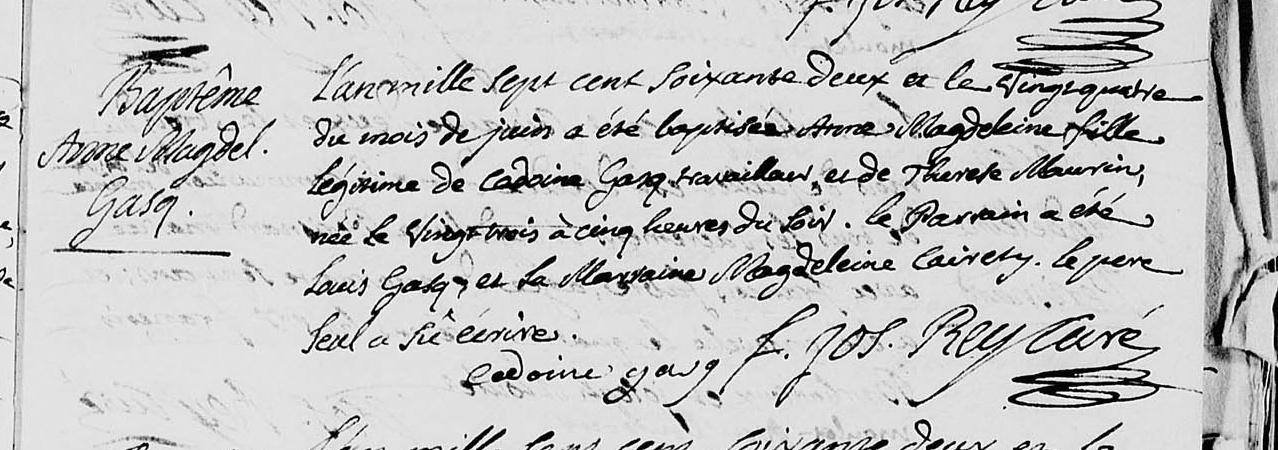 f. Jos. Rey Curé
Baptême
Anne Magdel.
Gasq.
L'an mille sept cent soixante deux et le vingt quatre
du mois de juin a été baptisée Anne Magdeleine fille
légitime de Cadoine Gasq travailleur, et de Therese Maurin,
née le vingt trois à cinq heures du soir. le Parrain a été
Louis Gasq, et la Marraine Magdeleine Cairety. le pere
seul a sû écrire.
Cadoine gasq f. Jos. Rey Curé
L'an mille sept cent soixante deux et le